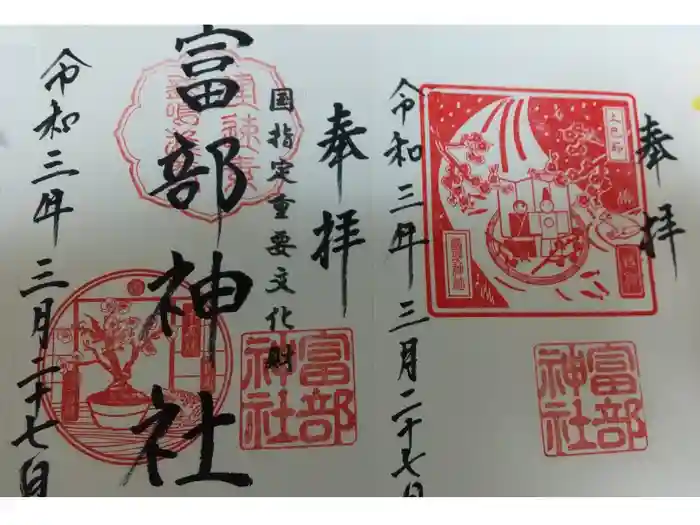 奉拝
富部神社
上巳節
令和三年三月二十七日
奉拝
国指定重要文化財
富部神社
富部神社
令和三年三月二十七日